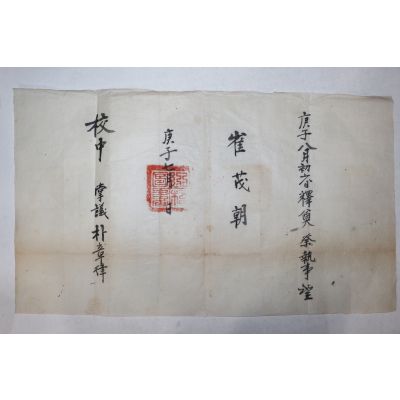 庚子八月初六日釋奠祭執事望
崔茂朝
庚子七月 日
校中
掌議朴章緯